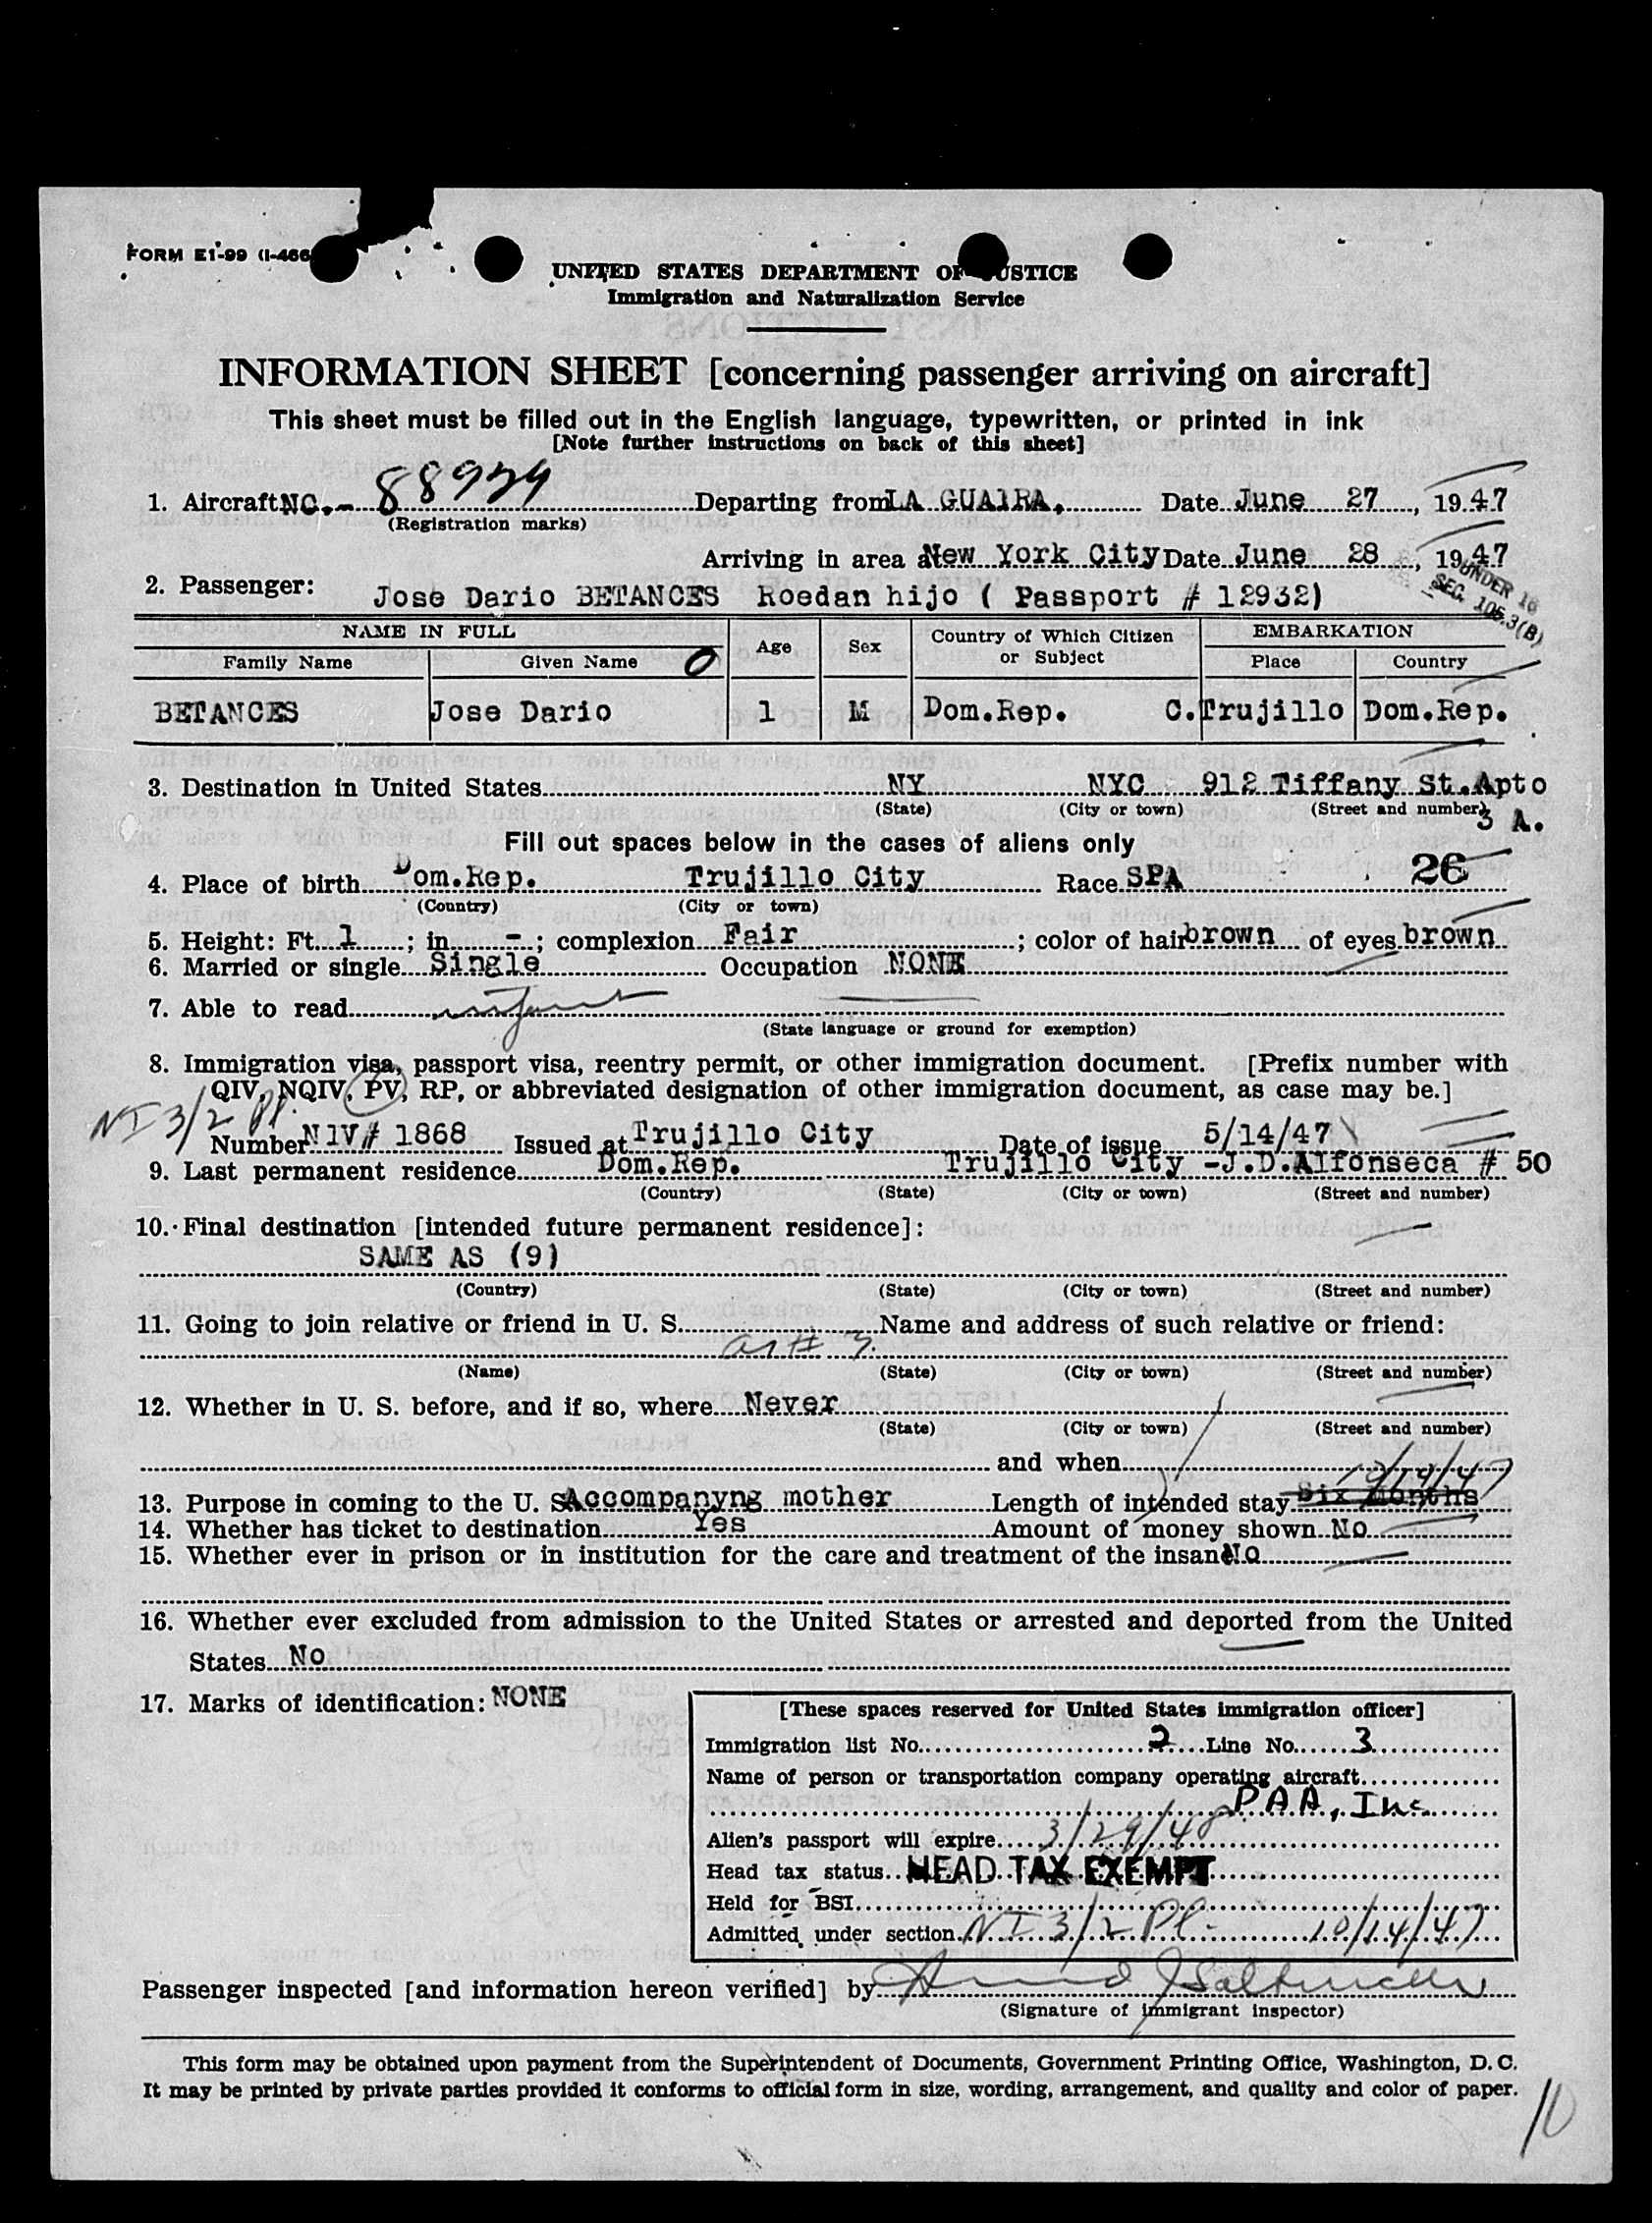 FORM E1-99 (I-466
UNITED STATES DEPARTMENT OF JUSTICE
Immigration and Naturalization Service
INFORMATION SHEET [concerning passenger arriving on aircraft]
This sheet must be filled out in the English language, typewritten, or printed in ink
[Note further instructions on back of this sheet]
1. Aircraft NC.- Departing from LA GUAIRA, Date June 27, 1947
(Registration marks)
Arriving in area at New York City Date June 28, 1947
UNDER 16
SEC. 105.3(B)
2. Passenger: Jose Dario BETANCES Roedan hijo ( Passport # 12932)
NAME IN FULL Age Sex Country of Which Citizen or Subject EMBARKATION
Family Name Given Name Place Country
BETANCES Jose Dario 1 M Dom.Rep. C.Trujillo Dom.Rep.
3. Destination in United States NY NYC 912 Tiffany St.Apto
(State) (City or town) (Street and number) 3 A.
Fill out spaces below in the cases of aliens only
4. Place of birth Dom.Rep. Trujillo City Race SPA 26
(Country) (City or town)
5. Height: Ft. 1; in. -; complexion Fair; color of hair brown of eyes brown
6. Married or single Single Occupation NONE
7. Able to read infant
(State language or ground for exemption)
8. Immigration visa, passport visa, reentry permit, or other immigration document. [Prefix number with
QIV, NQIV, PV, RP, or abbreviated designation of other immigration document, as case may be.]
NI 3/2 Pl.
Number NIV# 1868 Issued at Trujillo City Date of issue 5/14/47
9. Last permanent residence Dom.Rep. Trujillo City -J.D.Alfonseca # 50
(Country) (State) (City or town) (Street and number)
10. Final destination [intended future permanent residence]:
SAME AS (9)
(Country) (State) (City or town) (Street and number)
11. Going to join relative or friend in U. S. Name and address of such relative or friend:
as # 3.
(Name) (State) (City or town) (Street and number)
12. Whether in U. S. before, and if so, where Never
(State) (City or town) (Street and number)
and when
10/14/47
13. Purpose in coming to the U. S. Accompanyng mother Length of intended stay Six Months
14. Whether has ticket to destination Yes Amount of money shown No
15. Whether ever in prison or in institution for the care and treatment of the insane No
16. Whether ever excluded from admission to the United States or arrested and deported from the United
States No
17. Marks of identification: NONE
[These spaces reserved for United States immigration officer]
Immigration list No. 2 Line No. 3
Name of person or transportation company operating aircraft
PAA, Inc
Alien's passport will expire 3/29/48
Head tax status HEAD TAX EXEMPT
Held for BSI
Admitted under section NI 3/2 Pl- 10/14/47
Passenger inspected [and information hereon verified] by
(Signature of immigrant inspector)
This form may be obtained upon payment from the Superintendent of Documents, Government Printing Office, Washington, D. C.
It may be printed by private parties provided it conforms to official form in size, wording, arrangement, and quality and color of paper.
10